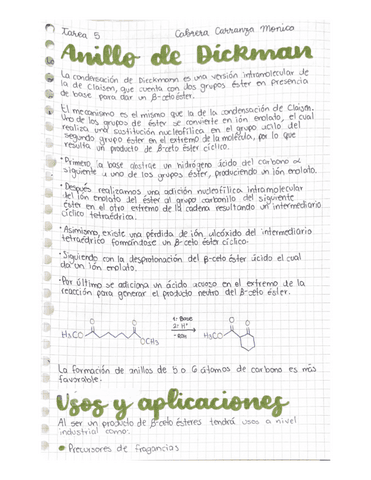 Tarea 5 Cabrera Carranza Monica
Anillo de Dickman
La condensación de Dieckmann es una versión intramolecular de
la de Claisen, que cuenta con dos grupos éster en presencia
de base para dar un β-ceto éster.
El mecanismo es el mismo que la de la condensación de Claisen.
Uno de los grupos de éster se convierte en ión enolato, el cual
realiza una sustitución nucleofílica en el grupo acilo del
segundo grupo éster en el extremo de la molécula, por lo que
resulta un producto de β-ceto éster cíclico.
•Primero, la base abstrae un hidrógeno ácido del carbono α
siguiente a uno de los grupos éster, produciendo un ión enolato.
•Después realizamos una adición nucleofílica intramolecular
del ión enolato del éster al grupo carbonilo del siguiente
éster en el otro extremo de la cadena resultando un intermediario
cíclico tetraédrica.
•Asimismo, existe una pérdida de ión alcóxido del intermediario
tetraédrico formándose un β-ceto éster cíclico.
•Siguiendo con la desprotonación del β-ceto éster ácido el cual
da un ión enolato.
•Por último se adiciona un ácido acuoso en el extremo de la
reacción para generar el producto neutro del β-ceto éster.
O O
1: Base
2: H⁺
O O
H₃CO
OCH₃
-ROH
H₃CO
La formación de anillos de 5 o 6 átomos de carbono es más
favorable.
Usos y aplicaciones
Al ser un producto de β-ceto ésteres tendrá usos a nivel
industrial como:
• Precursores de fragancias